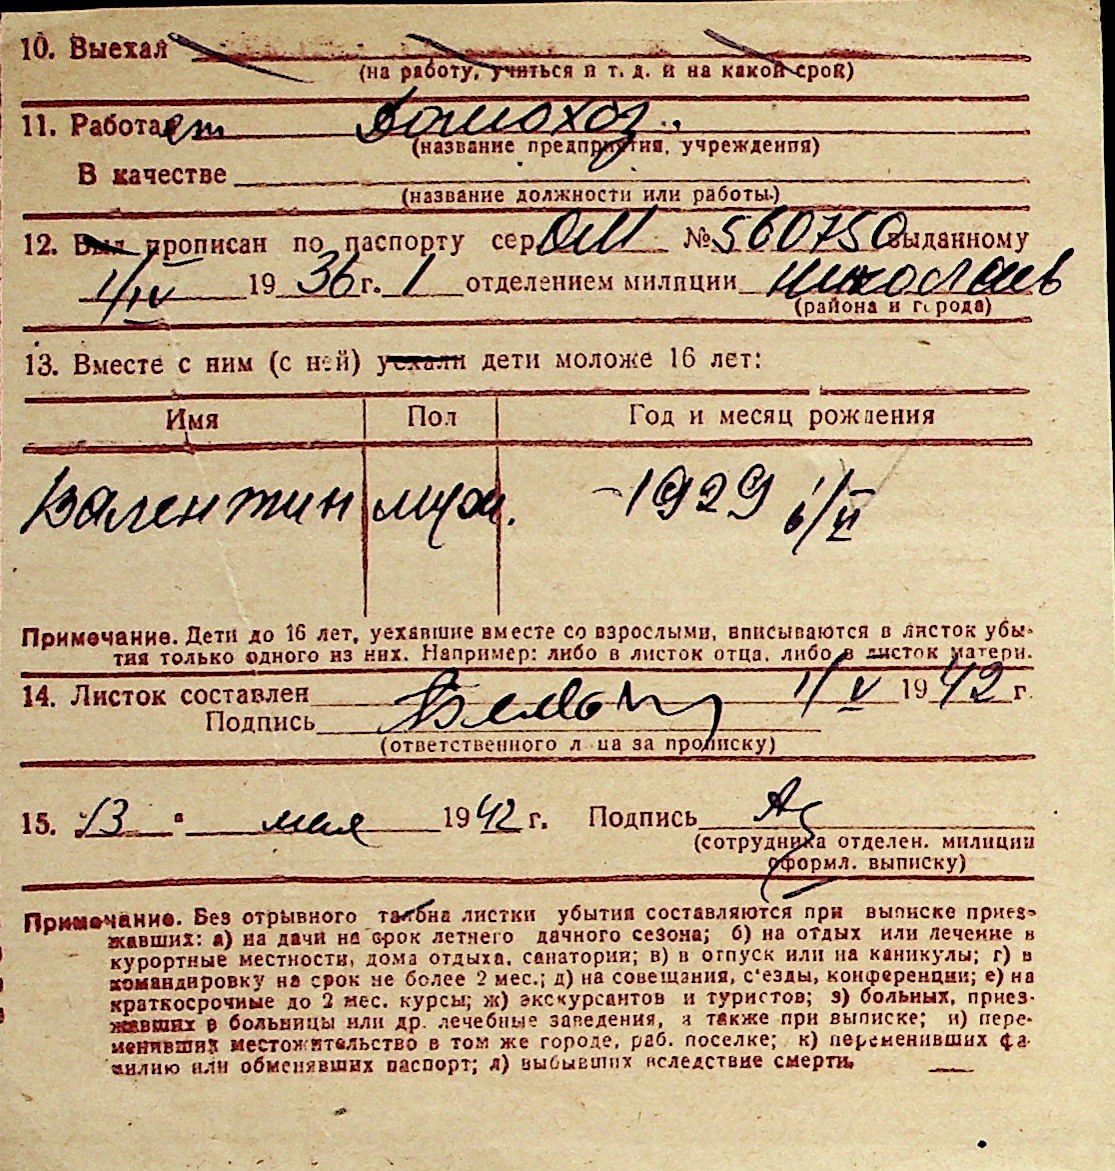 10. Выехал
(на работу, учиться и т. д. и на какой срок)
11. Работает Домохоз.
(название предприятия, учреждения)
В качестве
(название должности или работы.)
12. Был прописан по паспорту сер. ОМ № 560750 выданному
1/IV 1936 г. 1 отделением милиции Николаев
(района и города)
13. Вместе с ним (с ней) уехали дети моложе 16 лет:
Имя Пол Год и месяц рождения
Валентин муж. 1929 6/VI
Примечание. Дети до 16 лет, уехавшие вместе со взрослыми, вписываются в листок убы-
тия только одного из них. Например: либо в листок отца, либо в листок матери.
14. Листок составлен 1/V 1942 г.
Подпись
(ответственного лица за прописку)
15. 13 " мая 1942 г. Подпись
(сотрудника отделен. милиции
оформл. выписку)
Примечание. Без отрывного талона листки убытия составляются при выписке приез-
жавших: а) на дачи на срок летнего дачного сезона; б) на отдых или лечение в
курортные местности, дома отдыха, санатории; в) в отпуск или на каникулы; г) в
командировку на срок не более 2 мес.; д) на совещания, с'езды, конференции; е) на
краткосрочные до 2 мес. курсы; ж) экскурсантов и туристов; з) больных, приез-
жавших в больницы или др. лечебные заведения, а также при выписке; и) пере-
менивших местожительство в том же городе, раб. поселке; к) переменивших фа-
милию или обменявших паспорт; л) выбывших вследствие смерти.